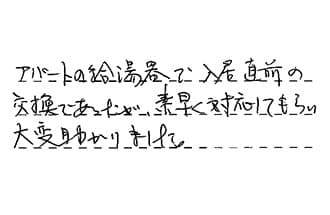 アパートの給湯器で入居直前の
交換であったが、素早く対応してもらい
大変助かりました。